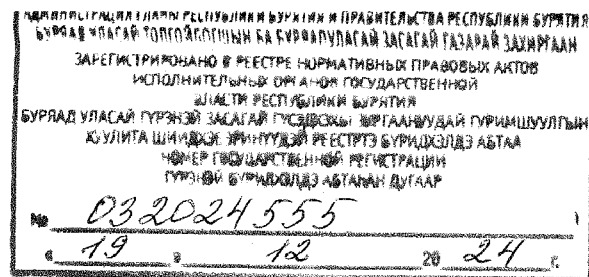 АДМИНИСТРАЦИЯ ГЛАВЫ РЕСПУБЛИКИ БУРЯТИЯ И ПРАВИТЕЛЬСТВА РЕСПУБЛИКИ БУРЯТИЯ
БУРЯАД УЛАСАЙ ТОЛГОЙЛОГШЫН БА БУРЯАД УЛАСАЙ ЗАСАГАЙ ГАЗАРАЙ ЗАХИРГААН
ЗАРЕГИСТРИРОВАНО В РЕЕСТРЕ НОРМАТИВНЫХ ПРАВОВЫХ АКТОВ
ИСПОЛНИТЕЛЬНЫХ ОРГАНОВ ГОСУДАРСТВЕННОЙ
ВЛАСТИ РЕСПУБЛИКИ БУРЯТИЯ
БУРЯАД УЛАСАЙ ГҮРЭНЭЙ ЗАСАГАЙ ГҮЙСЭДХЭХЫ ЗУРГААНУУДАЙ ГУРИМШУУЛГЫН
ХУУЛИТА ШИИДХЭЕ РЕЕСТРТЭ БҮРИДХЭЛДЭ АБТАА
НОМЕР ГОСУДАРСТВЕННОЙ РЕГИСТРАЦИИ
ГҮРЭНЭЙ БҮРИДХЭЛДЭ АБТАҺАН ДУГААР
№ 032024555
« 19 » 12 20 24 г.